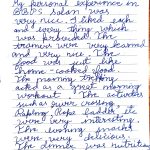 My personal experience in
BBPS salon was
very nice. I liked each
and every thing which
was provided. The
trainers were very learned
and very nice. The
food was just like
home-cooked food.
The morning trekking
acted as a great morning
workout. The activities
such as river crossing,
Raping, Rope ladder etc
were very interesting.
The evening snacks
were very delicious.
The dinner was nutritious